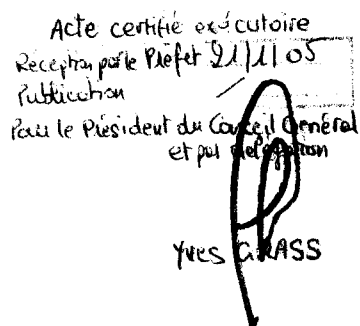 Acte certifié exécutoire
Réception par le Préfet 21/11/05
Publication
Pour le Président du Conseil Général
et par délégation
Yves GRASS